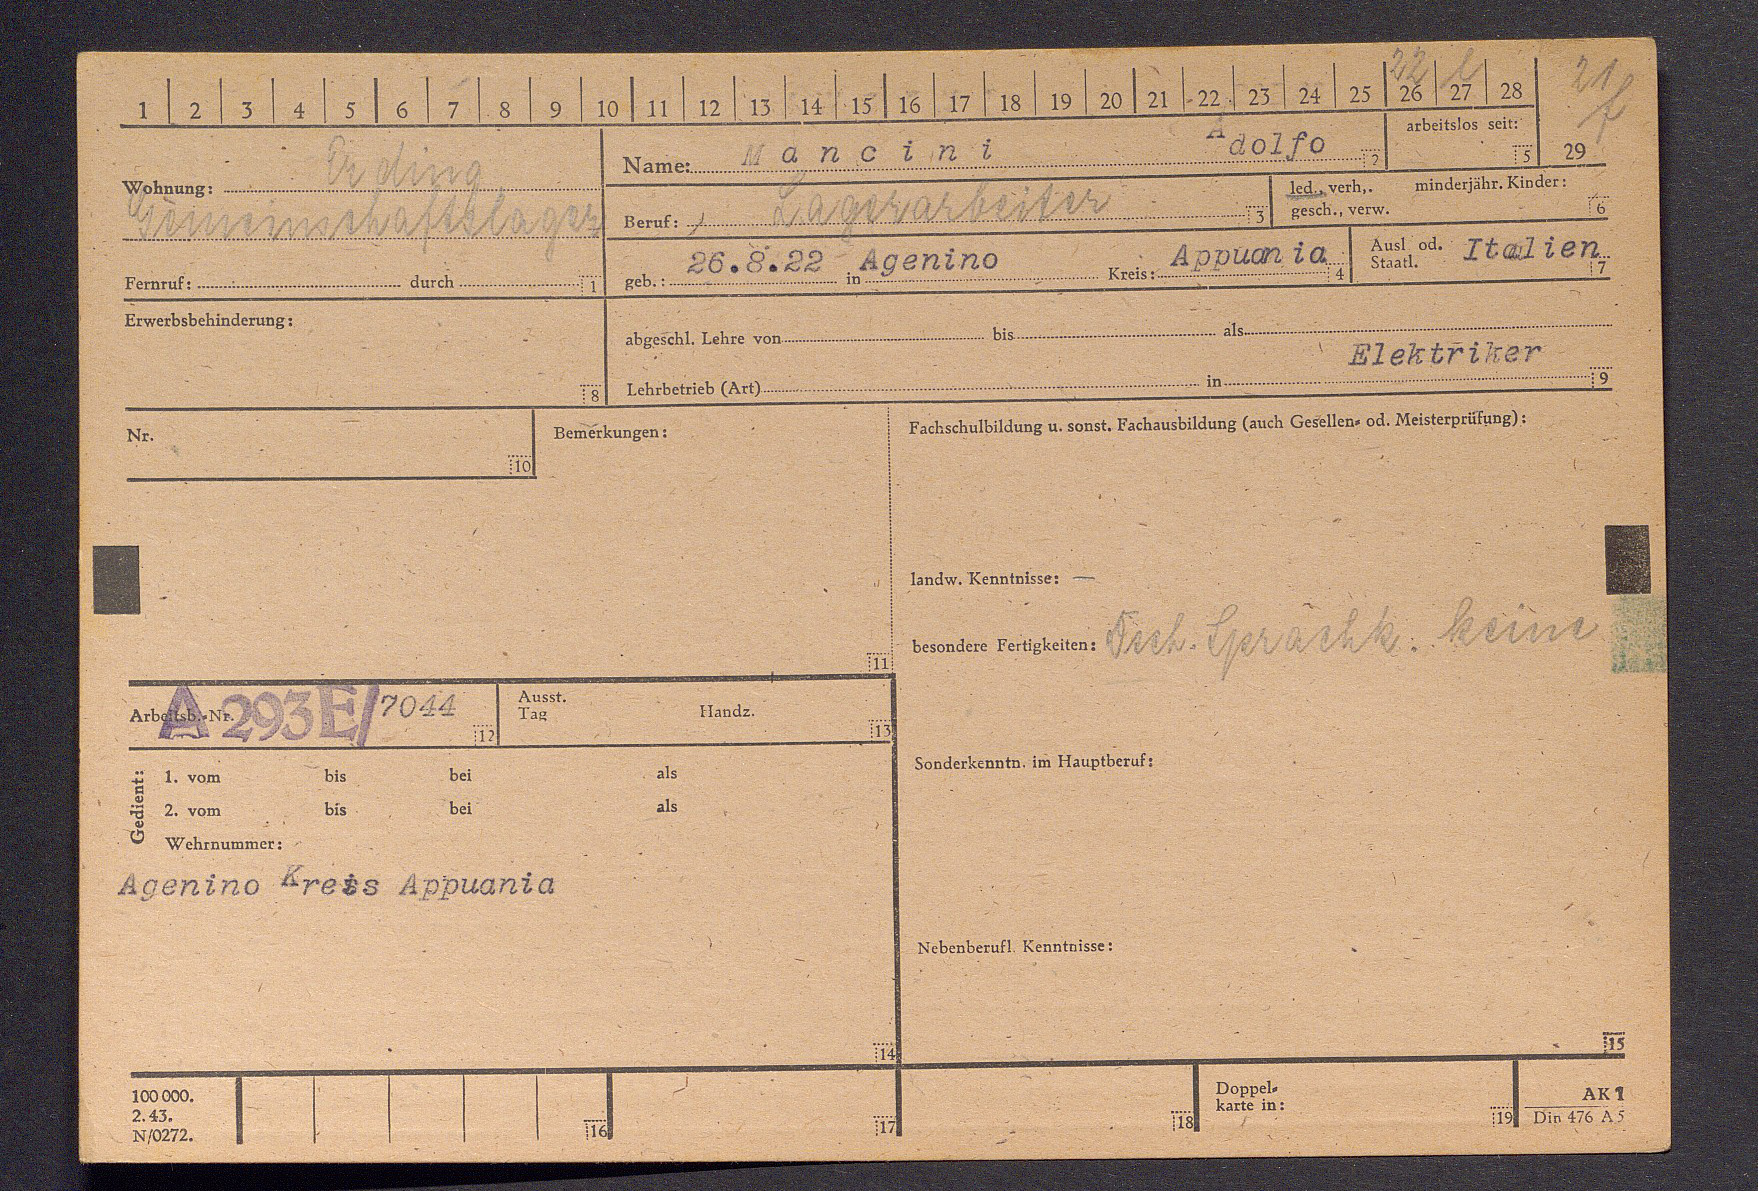 22 l 21 f
1 2 3 4 5 6 7 8 9 10 11 12 13 14 15 16 17 18 19 20 21 22 23 24 25 26 27 28
arbeitslos seit: 5 29
Wohnung: Erding
Gemeinschaftslager
Fernruf: durch 1
Name: Mancini Adolfo 2
Beruf: Lagerarbeiter 3
led., verh,. minderjähr. Kinder:
gesch., verw. 6
geb.: 26.8.22 in Agenino Kreis: Appuania 4
Ausl od. Staatl. Italien 7
Erwerbsbehinderung: 8
abgeschl. Lehre von bis als
Elektriker
Lehrbetrieb (Art) in 9
Nr. 10
Bemerkungen: 11
Fachschulbildung u. sonst. Fachausbildung (auch Gesellen- od. Meisterprüfung):
landw. Kenntnisse: —
besondere Fertigkeiten: Dtsch. Sprachk. keine
Arbeitsb.-Nr. A 293E/7044 12
Ausst.
Tag Handz. 13
Sonderkenntn. im Hauptberuf:
Gedient:
1. vom bis bei als
2. vom bis bei als
Wehrnummer:
Agenino Kreis Appuania
14
Nebenberufl. Kenntnisse:
15
100 000.
2. 43.
N/0272.
16 17 18
Doppel-
karte in: 19
AK 1
Din 476 A 5